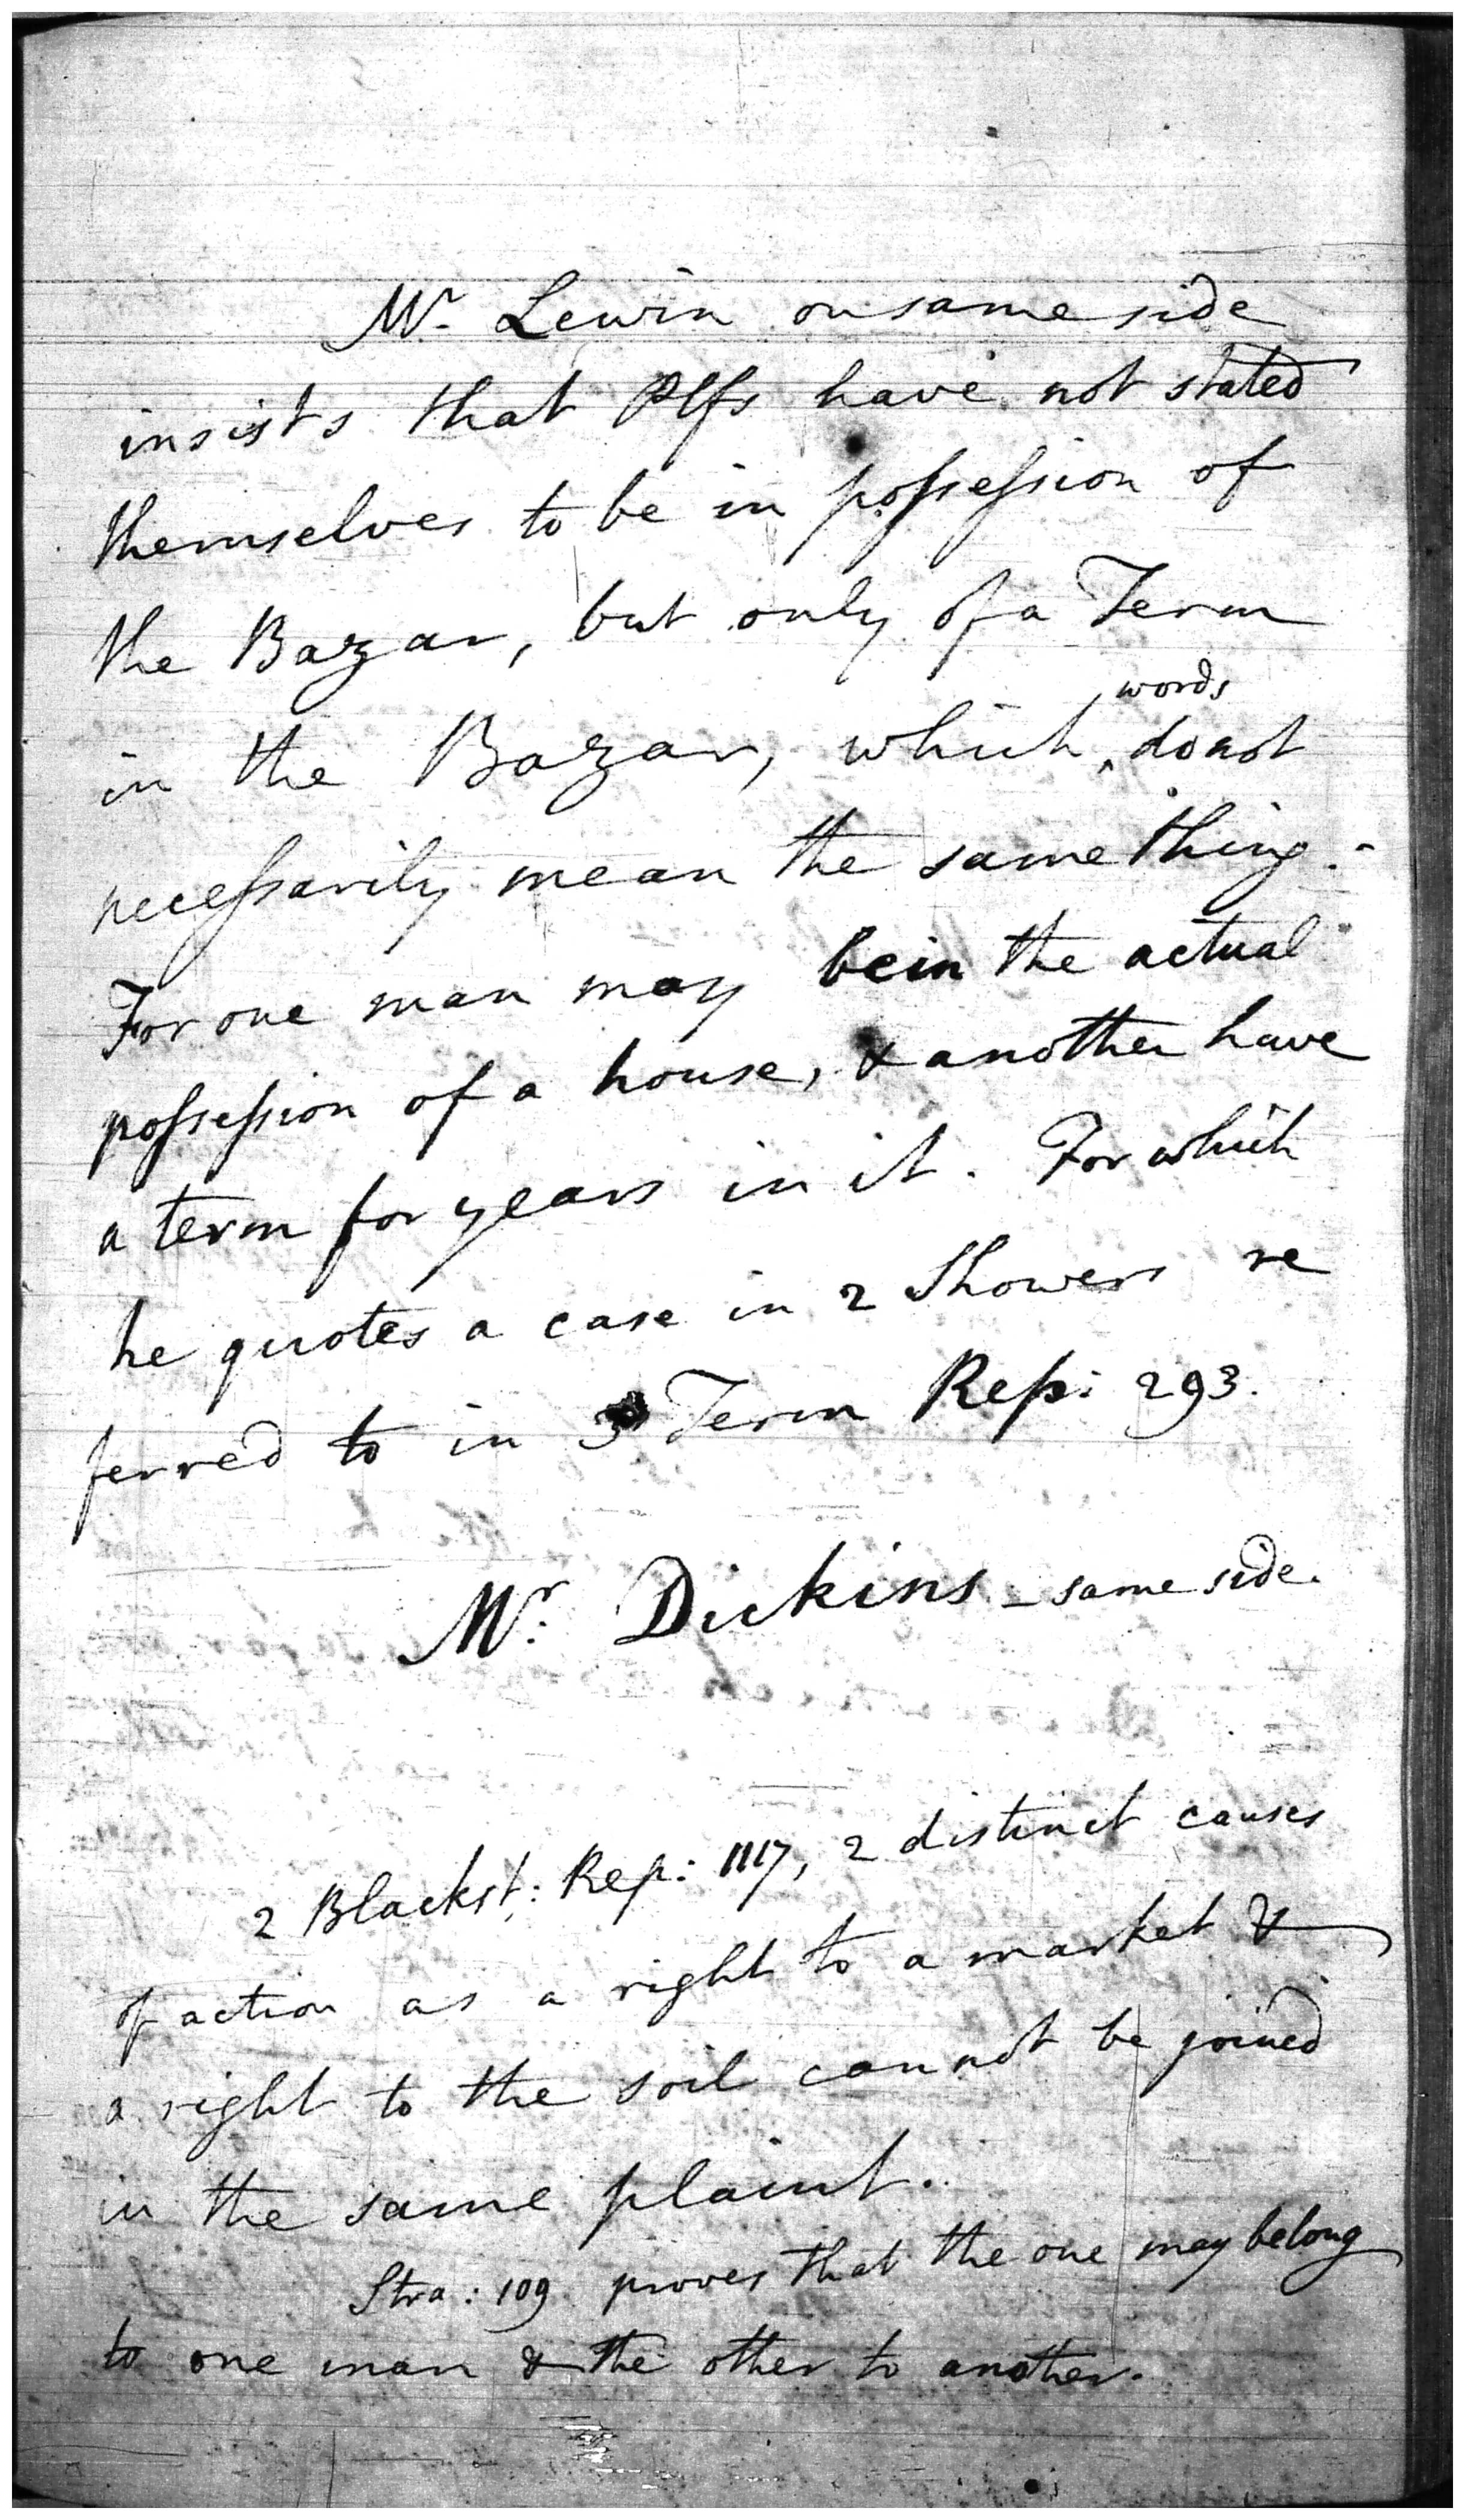 Mr. Lewin on same side
insists that Plfs have not stated
themselves to be in possession of
the Bazar, but only of a Term
words
in the Bazar, which ^ do not
necessarily mean the same thing.-
For one man may be in the actual
possession of a house, & another have
a term for years in it. For which
he quotes a case in 2 Showers re
ferred to in 3 Term Rep: 293.
Mr. Dickins - same side.
2 Blackst: Rep: 1117, 2 distinct causes
of action as a right to a market &
a right to the soil cannot be joined
in the same plaint.
Stra: 109 proves that the one may belong
to one man & the other to another.